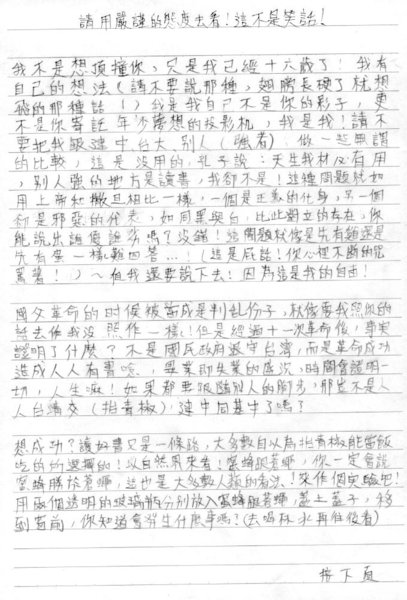 請用嚴謹的態度去看!這不是笑話!
我不是想頂撞你,只是我已經十六歲了!我有
自己的想法(請不要說那種,翅膀長硬了就想
飛的那種話!)我是我自己不是你的影子,更
不是你寄託年少夢想的投影机,我是我!請不
要把我跟建中.台大.別人(強者).做一起無謂
的比較,這是沒用的,孔子說:天生我材必有用
,別人強的地方是讀書,我卻不是!這種問題就如
用上帝和撒旦相比一樣,一個是正義的化身,另一個
卻是邪惡的代表,如同黑與白,比此對立的存在,你
能說出誰優誰劣嗎?沒錯!這問題就像是先有雞還是
先有蛋一樣難回答...!(這是屁話!你心裡不斷的咒
罵著!)~但我還要說下去!因為這是我的自由!
國父革命的时候被當成是判乱份子,就像要我照你的
話去做我沒照作一樣!但是經過十一次革命後,事實
證明了什麼?不是國民政府退守台灣,而是革命成功
造成人人有書唸,畢業即失業的盛況,時間會證明一
切,人生嘛!如果都要跟隨別人的腳步,那豈不是人
人台清交(抬青椒),建中同基牛了嗎?
想成功?讀好書又是一條路,大多數自以為抬青椒能當飯
吃的的選擇的!以自然界來看!蜜蜂跟蒼蠅,你一定會說
蜜蜂勝於蒼蠅,這也是大多數人類的看法!來作個實驗吧!
用兩個透明的玻璃瓶分別放入蜜蜂跟蒼蠅,蓋上蓋子,移
到窗前,你知道會發生什麼事嗎?(去喝杯水再往後看)
按下頁